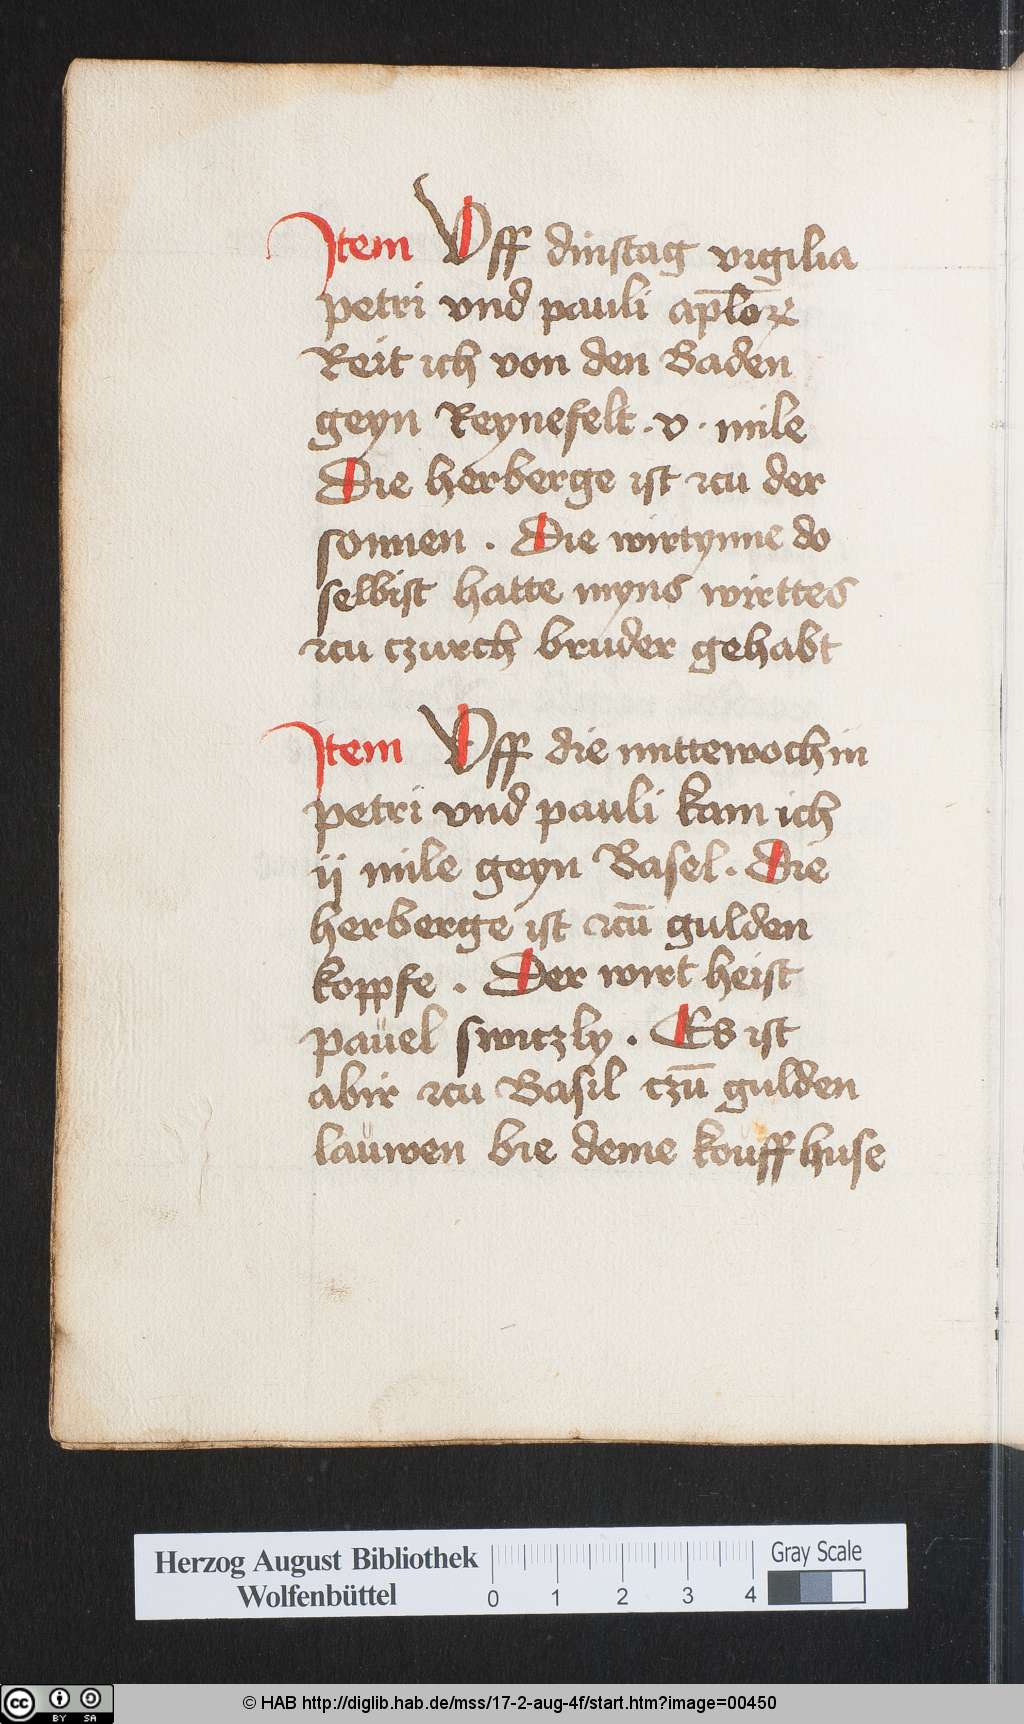 Item Vff dinstag vigilia
petri vnd pauli apl̄oꝝ
Reit ich von den Baden
geyn Reynefelt . v . mile
Die herberge ist zcu der
sonnen . Die wirtynne do
selbist hatte myns wirttes
zcu czurch bruder gehabt
Item Vff die mittewochin
petri vnd pauli kam ich
ij mile geyn Basel . Die
herberge ist zcū gulden
koppfe . Der wirt heist
paüel switzly . Es ist
abir zcu Basil czū gulden
laüwen bie deme koüffhuse
Herzog August Bibliothek
Wolfenbüttel
0 1 2 3 4
Gray Scale
cc BY SA
© HAB http://diglib.hab.de/mss/17-2-aug-4f/start.htm?image=00450